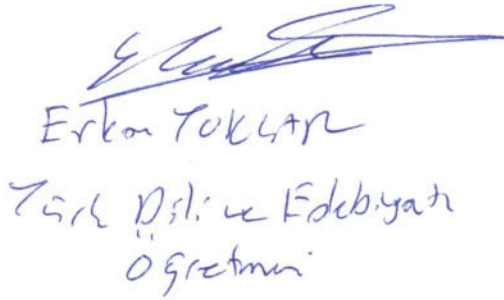 Erkan TOKLAR
Türk Dili ve Edebiyatı
Öğretmeni